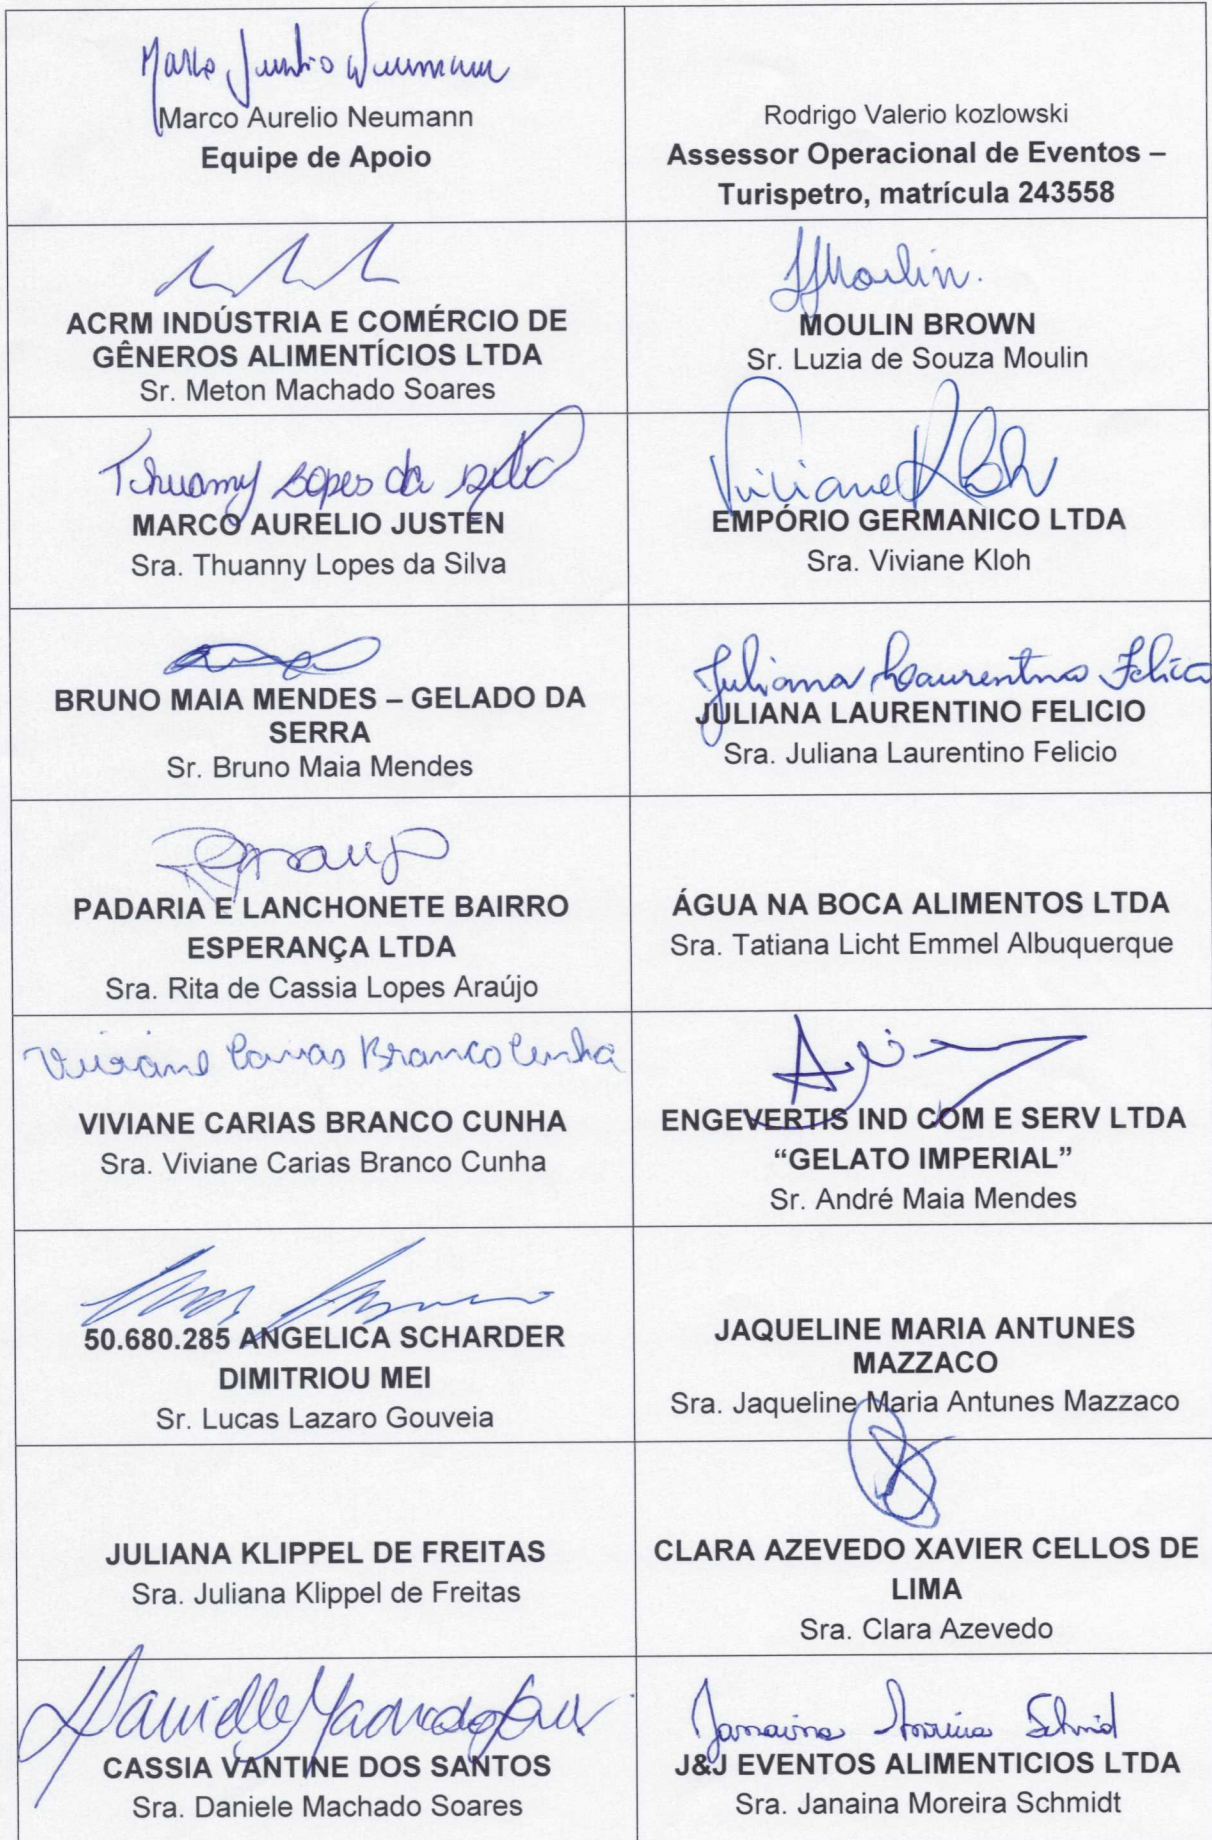 Marco Aurelio Neumann
Equipe de Apoio
Rodrigo Valerio kozlowski
Assessor Operacional de Eventos –
Turispetro, matrícula 243558
ACRM INDÚSTRIA E COMÉRCIO DE
GÊNEROS ALIMENTÍCIOS LTDA
Sr. Meton Machado Soares
Moulin.
MOULIN BROWN
Sr. Luzia de Souza Moulin
Thuanny Lopes da Silva
MARCO AURELIO JUSTEN
Sra. Thuanny Lopes da Silva
Viviane Kloh
EMPÓRIO GERMANICO LTDA
Sra. Viviane Kloh
BRUNO MAIA MENDES – GELADO DA
SERRA
Sr. Bruno Maia Mendes
Juliana Laurentino Felicio
JULIANA LAURENTINO FELICIO
Sra. Juliana Laurentino Felicio
PADARIA E LANCHONETE BAIRRO
ESPERANÇA LTDA
Sra. Rita de Cassia Lopes Araújo
ÁGUA NA BOCA ALIMENTOS LTDA
Sra. Tatiana Licht Emmel Albuquerque
Viviane Carias Branco Cunha
VIVIANE CARIAS BRANCO CUNHA
Sra. Viviane Carias Branco Cunha
ENGEVERTIS IND COM E SERV LTDA
“GELATO IMPERIAL”
Sr. André Maia Mendes
50.680.285 ANGELICA SCHARDER
DIMITRIOU MEI
Sr. Lucas Lazaro Gouveia
JAQUELINE MARIA ANTUNES
MAZZACO
Sra. Jaqueline Maria Antunes Mazzaco
JULIANA KLIPPEL DE FREITAS
Sra. Juliana Klippel de Freitas
CLARA AZEVEDO XAVIER CELLOS DE
LIMA
Sra. Clara Azevedo
CASSIA VANTINE DOS SANTOS
Sra. Daniele Machado Soares
J&J EVENTOS ALIMENTICIOS LTDA
Sra. Janaina Moreira Schmidt